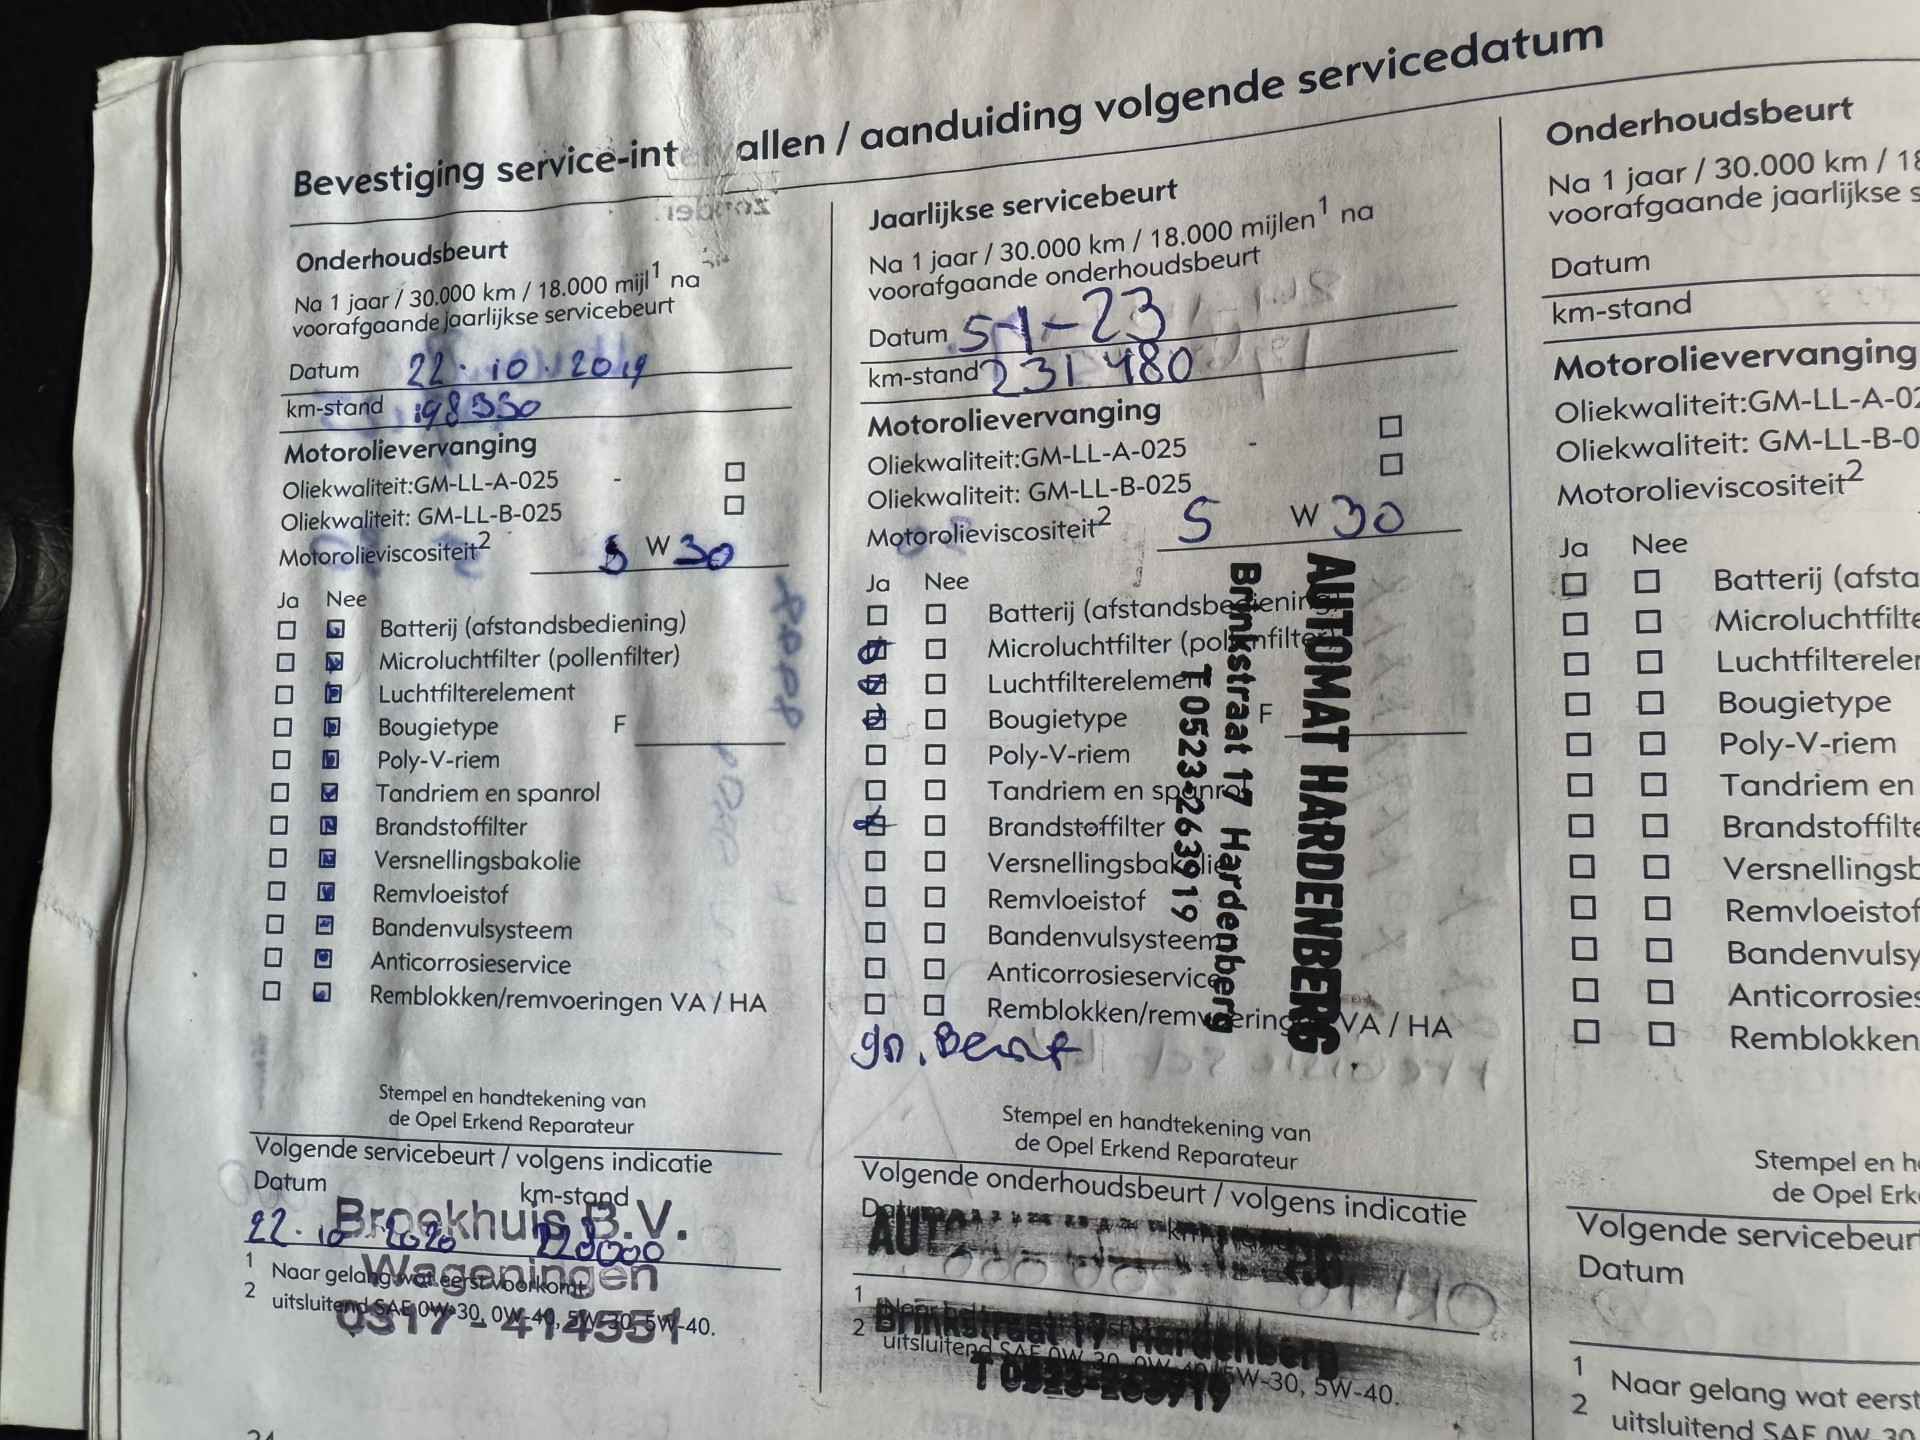 Bevestiging service-int allen / aanduiding volgende servicedatum
Onderhoudsbeurt
Na 1 jaar / 30.000 km / 18.000 mijl1 na
voorafgaande jaarlijkse servicebeurt
Datum 22.10.2019
km-stand 198330
Motorolievervanging
Oliekwaliteit:GM-LL-A-025 -
Oliekwaliteit: GM-LL-B-025
Motorolieviscositeit2 5 W 30
Ja Nee
Batterij (afstandsbediening)
Microluchtfilter (pollenfilter)
Luchtfilterelement
Bougietype F
Poly-V-riem
Tandriem en spanrol
Brandstoffilter
Versnellingsbakolie
Remvloeistof
Bandenvulsysteem
Anticorrosieservice
Remblokken/remvoeringen VA / HA
Stempel en handtekening van
de Opel Erkend Reparateur
Volgende servicebeurt / volgens indicatie
Datum km-stand
22.10 2020 220000
Broekhuis B.V.
Wageningen
0317 - 414551
1 Naar gelang wat eerst voorkomt
2 uitsluitend SAE 0W-30, 0W-40, 5W-30, 5W-40.
Jaarlijkse servicebeurt
Na 1 jaar / 30.000 km / 18.000 mijlen1 na
voorafgaande onderhoudsbeurt
Datum 5-1-23
km-stand 231480
Motorolievervanging
Oliekwaliteit:GM-LL-A-025 -
Oliekwaliteit: GM-LL-B-025
Motorolieviscositeit2 5 W 30
Ja Nee
Batterij (afstandsbediening)
Microluchtfilter (pollenfilter)
Luchtfilterelement
Bougietype F
Poly-V-riem
Tandriem en spanrol
Brandstoffilter
Versnellingsbakolie
Remvloeistof
Bandenvulsysteem
Anticorrosieservice
Remblokken/remvoeringen VA / HA
AUTOMAT HARDENBERG
Brinkstraat 17 Hardenberg
T 0523-263919
gr. Beurt
Stempel en handtekening van
de Opel Erkend Reparateur
Volgende onderhoudsbeurt / volgens indicatie
Datum
Brinkstraat 17 Hardenberg
1
2 uitsluitend SAE 0W-30, 0W-40, 5W-30, 5W-40.
Onderhoudsbeurt
Na 1 jaar / 30.000 km / 18
voorafgaande jaarlijkse s
Datum
km-stand
Motorolievervanging
Oliekwaliteit:GM-LL-A-02
Oliekwaliteit: GM-LL-B-0
Motorolieviscositeit2
Ja Nee
Batterij (afsta
Microluchtfilte
Luchtfilterelem
Bougietype
Poly-V-riem
Tandriem en
Brandstoffilte
Versnellingsb
Remvloeistof
Bandenvulsy
Anticorrosies
Remblokken
Stempel en h
de Opel Erke
Volgende servicebeur
Datum
1 Naar gelang wat eerst
2 uitsluitend SAE 0W-30